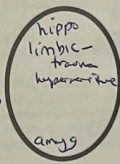 hippo
limbic-
trauma
hypersensitive
amyg